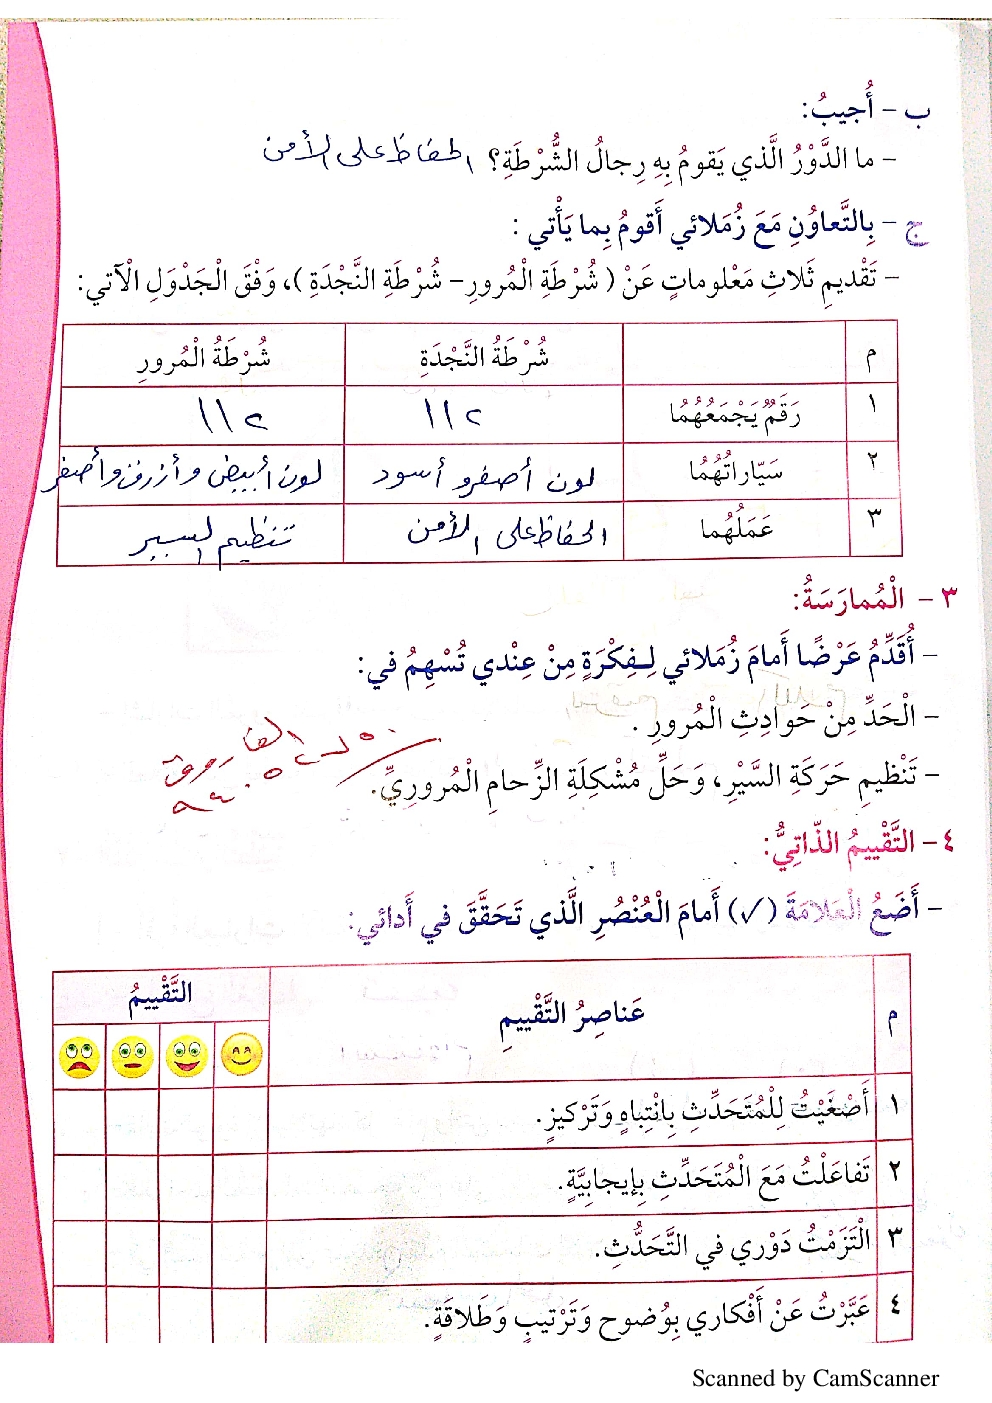 ب - أُجيبُ:
- ما الدَّوْرُ الَّذي يَقومُ بِهِ رِجالُ الشُّرْطَةِ؟ الحفاظ على الأمن
ج - بِالتَّعاوُنِ مَعَ زُمَلائي أَقومُ بِما يَأْتي :
- تَقْديمِ ثَلاثِ مَعْلوماتٍ عَنْ ( شُرْطَةِ الْمُرورِ- شُرْطَةِ النَّجْدَةِ )، وَفْقَ الْجَدْوَلِ الْآتي:
م شُرْطَةُ النَّجْدَةِ شُرْطَةُ الْمُرورِ
١ رَقَمٌ يَجْمَعُهُمُا ١١٢ ١١٢
٢ سَيّاراتُهُمُا لون أصفر و أسود لون أبيض و أزرق و أصفر
٣ عَمَلُهُما الحفاظ على الأمن تنظيم السير
٣ - الْمُمارَسَةُ:
- أُقَدِّمُ عَرْضًا أَمامَ زُمَلائي لِفِكْرَةٍ مِنْ عِنْدي تُسْهِمُ في:
- الْحَدِّ مِنْ حَوادِثِ الْمُرورِ .
- تَنْظيمِ حَرَكَةِ السَّيْرِ، وَحَلِّ مُشْكِلَةِ الزِّحامِ الْمُروريِّ.
٤ - التَّقْييمُ الذّاتِيُّ:
- أَضَعُ الْعَلامَةَ (✓) أَمامَ الْعُنْصُرِ الَّذي تَحَقَّقَ في أَدائي:
م عَناصِرُ التَّقْييمِ التَّقْييمُ
١ أَصْغَيْتُ لِلْمُتَحَدِّثِ بِانْتِباهٍ وَتَرْكيزٍ.
٢ تَفاعَلْتُ مَعَ الْمُتَحَدِّثِ بِإيجابِيَّةٍ.
٣ الْتَزَمْتُ دَوْري في التَّحَدُّثِ.
٤ عَبَّرْتُ عَنْ أَفْكاري بِوُضوحٍ وَتَرْتيبٍ وَطَلاقَةٍ.
Scanned by CamScanner